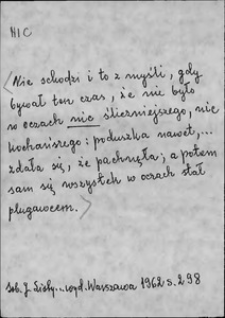 NIC
<Nie schodzi i to z myśli, gdy
bywał ten czas, że nie było
w oczach nic śliczniejszego, nic
kochańszego i poduszka nawet,...
zdała się, że pachnęła; a potem
sam się wszystek w oczach stał
plugawcem.>
Sob. J. Listy... wyd. Warszawa 1962 s. 298